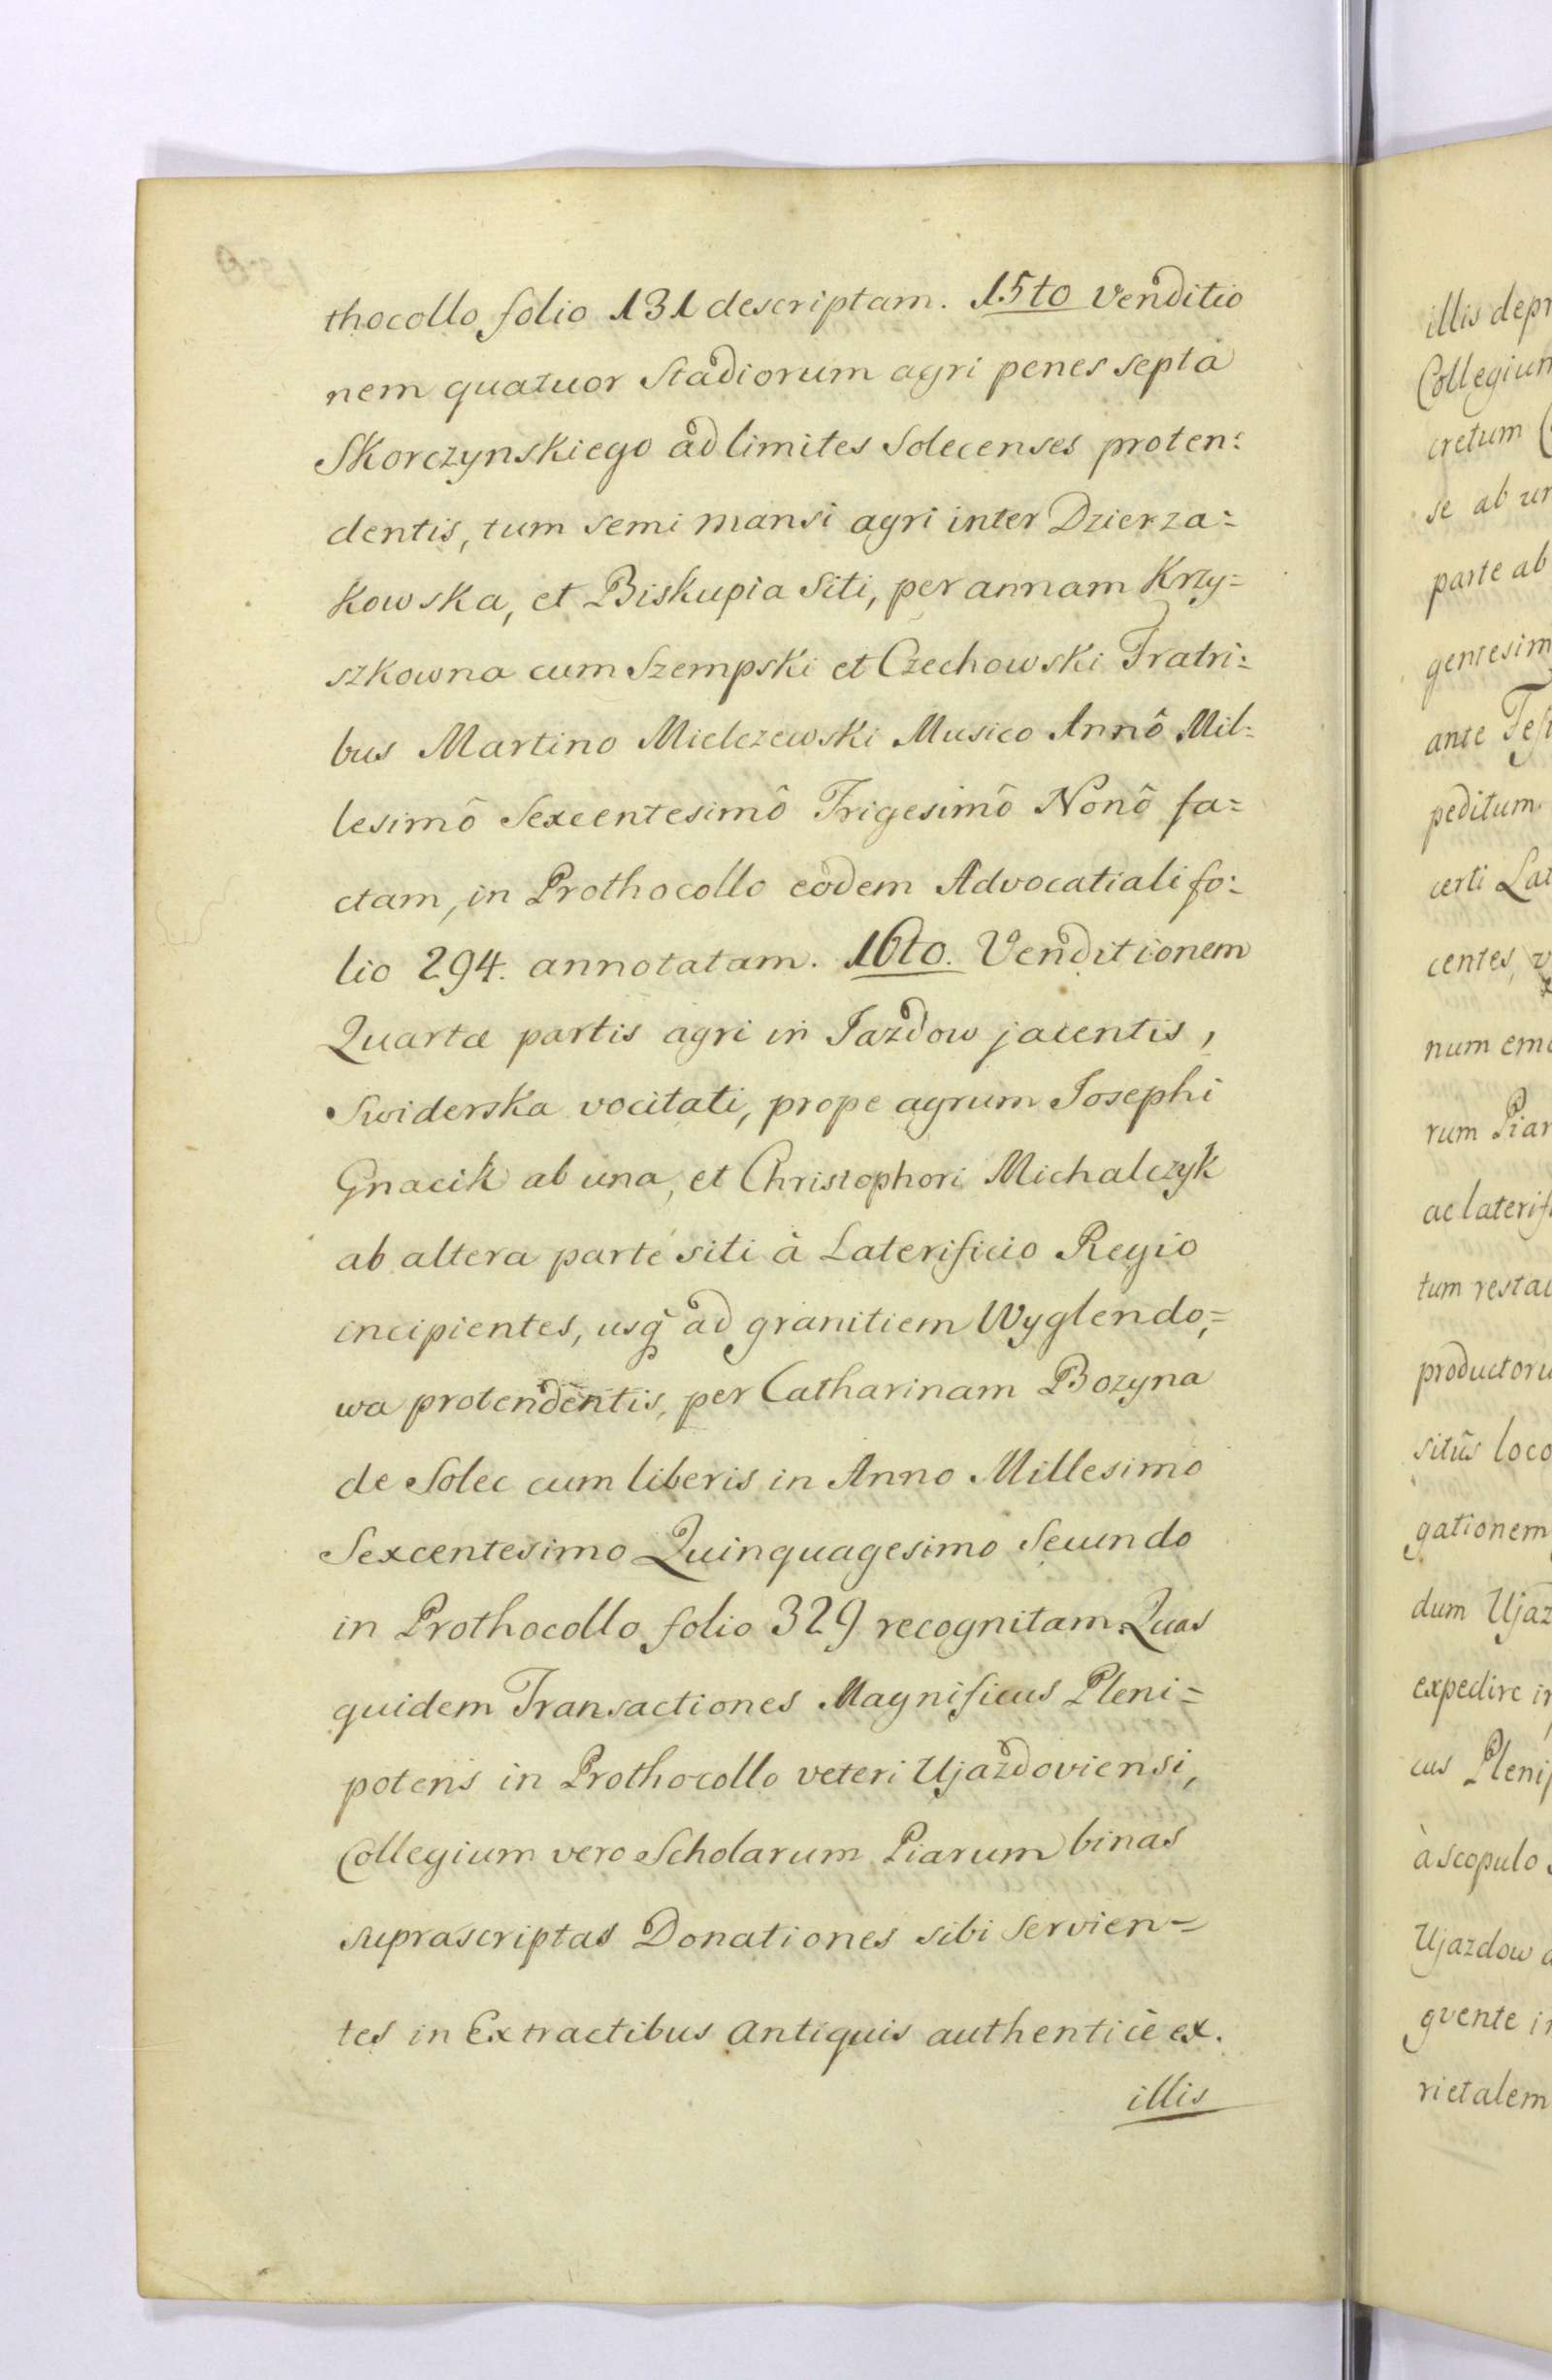 thocollo folio 131 descriptam. 15to Venditio
nem quatuor Stadiorum agri penes septa
Skorczynskiego ad limites Solecenses proten:
dentis, tum semi mansi agri inter Dzierza=
kowska, et Biskupia Siti, per annam Krzy=
szkowna cum Szempski et Czechowski Fratri:
bus Martino Mielczewski Musico Annô Mil:
lesimô Sexcentesimô Trigesimô Nonô fa=
ctam, in Prothocollo eodem Advocatiali fo:
lio 294. annotatam. 16to. Venditionem
Quartæ partis agri in Jazdow jacentis,
Swiderska vocitati, prope agrum Josephi
Gnacik ab una, et Christophori Michalczyk
ab altera parte siti à Laterificio Regio
incipientes, usq ad granitiem Wyglendo,=
wa protendentis, per Catharinam Bozyna
de Solec cum liberis in Anno Millesimo
Sexcentesimo Quinquagesimo Secundo
in Prothocollo folio 329 recognitam. Quas
quidem Transactiones Magnificus Pleni=
potens in Prothocollo veteri Ujazdoviensi,
Collegium vero Scholarum Piarum binas
suprascriptas Donationes sibi servien=
tes in Extractibus Antiquis authenticè ex.
illis
illis depr
Collegium
cretum
se ab un
parte ab
gentesim
ante Fes
peditum
certi Lat
centes,
num em
rum Piar
ac laterifi
tum resta
productoru
sitûs loco
gationem
dum Ujaz
expedire in
cus Plenip
à scopulo
Ujazdow
quente in
rietalem